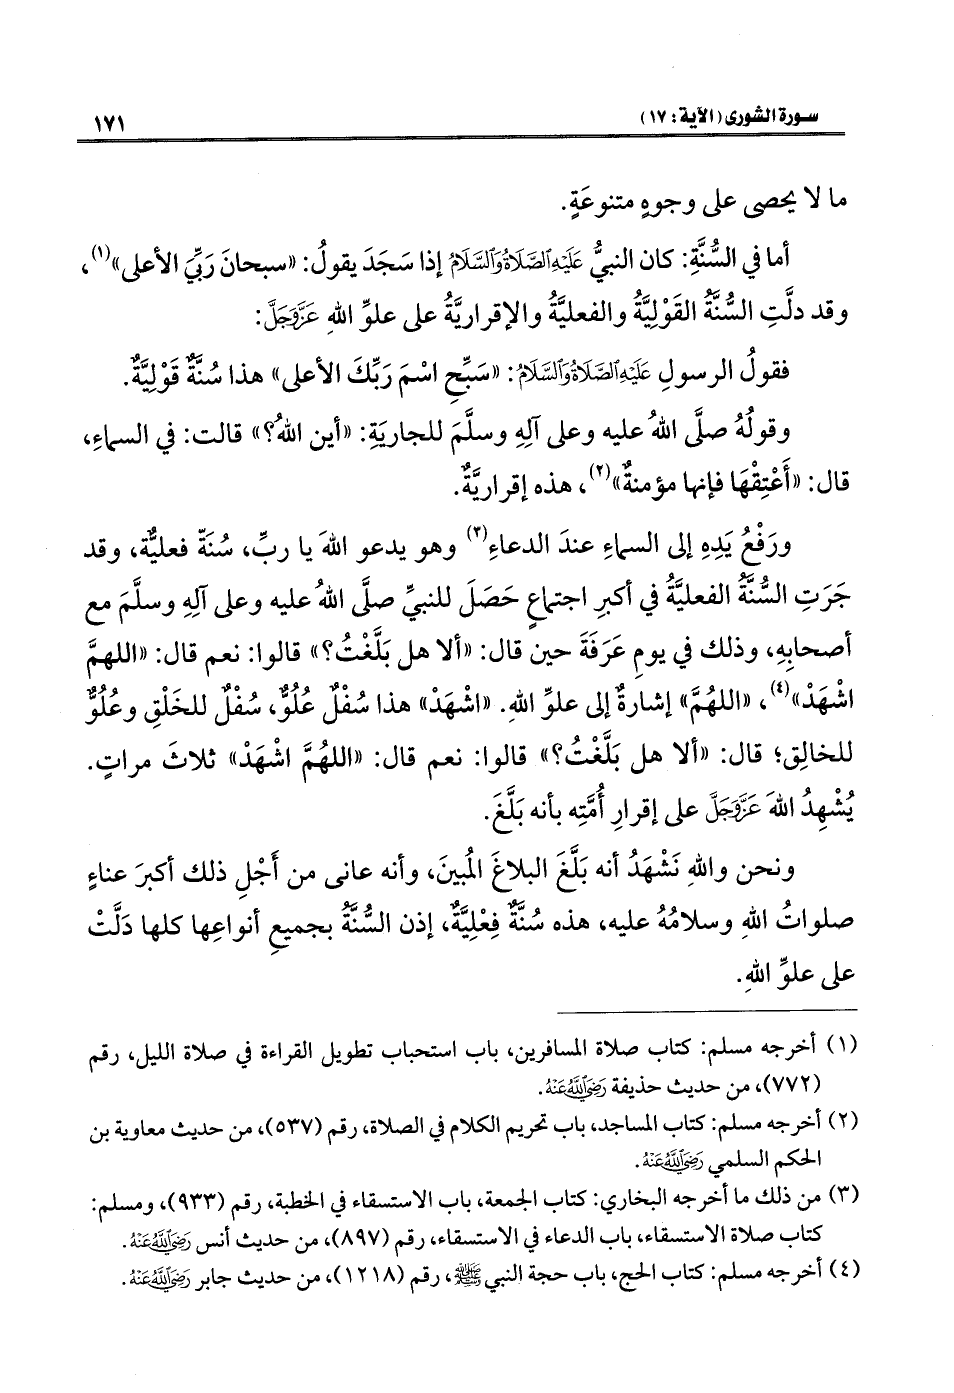 سورة الشورى (الآية: ١٧)
١٧١
ما لا يحصى على وجوهٍ متنوعَةٍ.
أما في السُّنَّةِ: كان النبيُّ عَلَيْهِ الصَّلَاةُ وَالسَّلَامُ إذا سَجَدَ يقولُ: «سبحانَ رَبِّيَ الأعلى»(١)،
وقد دلَّتِ السُّنَّةُ القَوْلِيَّةُ والفعليَّةُ والإقراريَّةُ على علوِّ اللهِ عَزَّوَجَلَّ:
فقولُ الرسولِ عَلَيْهِ الصَّلَاةُ وَالسَّلَامُ: «سَبِّحِ اسْمَ رَبِّكَ الأعلى» هذا سُنَّةٌ قَوْلِيَّةٌ.
وقولُهُ صلَّى اللهُ عليه وعلى آلِهِ وسلَّمَ للجاريَةِ: «أين اللهُ؟» قالت: في السماءِ،
قال: «أَعْتِقْهَا فإنها مؤمنةٌ»(٢)، هذه إقراريَّةٌ.
ورَفْعُ يَدِهِ إلى السماءِ عندَ الدعاءِ(٣) وهو يدعو اللهَ يا ربِّ، سُنَةّ فعليَّة، وقد
جَرَتِ السُّنَّةُ الفعليَّةُ في أكبرِ اجتماعٍ حَصَلَ للنبيِّ صلَّى اللهُ عليه وعلى آلِهِ وسلَّمَ مع
أصحابِهِ، وذلك في يومِ عَرَفَةَ حين قال: «ألا هل بَلَّغْتُ؟» قالوا: نعم قال: «اللهمَّ
اشْهَدْ»(٤)، «اللهُمَّ» إشارةٌ إلى علوِّ اللهِ. «اشْهَدْ» هذا سُفْلٌ عُلُوٌّ، سُفْلٌ للخَلْقِ وعُلُوٌّ
للخالِقِ؛ قال: «ألا هل بَلَّغْتُ؟» قالوا: نعم قال: «اللهُمَّ اشْهَدْ» ثلاثَ مراتٍ.
يُشْهِدُ اللهَ عَزَّوَجَلَّ على إقرارِ أُمَّتِه بأنه بَلَّغَ.
ونحن واللهِ نَشْهَدُ أنه بَلَّغَ البلاغَ المُبينَ، وأنه عانى من أَجْلِ ذلك أكبرَ عناءٍ
صلواتُ اللهِ وسلامُهُ عليه، هذه سُنَّةٌ فِعْلِيَّةٌ، إذن السُّنَّةُ بجميعِ أنواعِها كلها دَلَّتْ
على علوِّ اللهِ.
(١) أخرجه مسلم: كتاب صلاة المسافرين، باب استحباب تطويل القراءة في صلاة الليل، رقم
(٧٧٢)، من حديث حذيفة رَضِيَ اللهُ عَنْهُ.
(٢) أخرجه مسلم: كتاب المساجد، باب تحريم الكلام في الصلاة، رقم (٥٣٧)، من حديث معاوية بن
الحكم السلمي رَضِيَ اللهُ عَنْهُ.
(٣) من ذلك ما أخرجه البخاري: كتاب الجمعة، باب الاستسقاء في الخطبة، رقم (٩٣٣)، ومسلم:
كتاب صلاة الاستسقاء، باب الدعاء في الاستسقاء، رقم (٨٩٧)، من حديث أنس رَضِيَ اللهُ عَنْهُ.
(٤) أخرجه مسلم: كتاب الحج، باب حجة النبي ﷺ، رقم (١٢١٨)، من حديث جابر رَضِيَ اللهُ عَنْهُ.